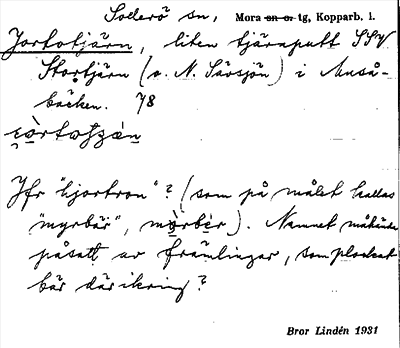 Sollerö sn, Mora sn o. tg, Kopparb. l.
Jortotjärn, liten tjärnputt SSV
Stortjärn (v. N. Säxsjön) i Anså-
bäcken. 78
Jfr "hjortron"? (som på målet kallas
"myrbär", mòrbèr). Namnet måhända
påsatt av främlingar, som plockat
bär däromkring?
Bror Lindén 1931